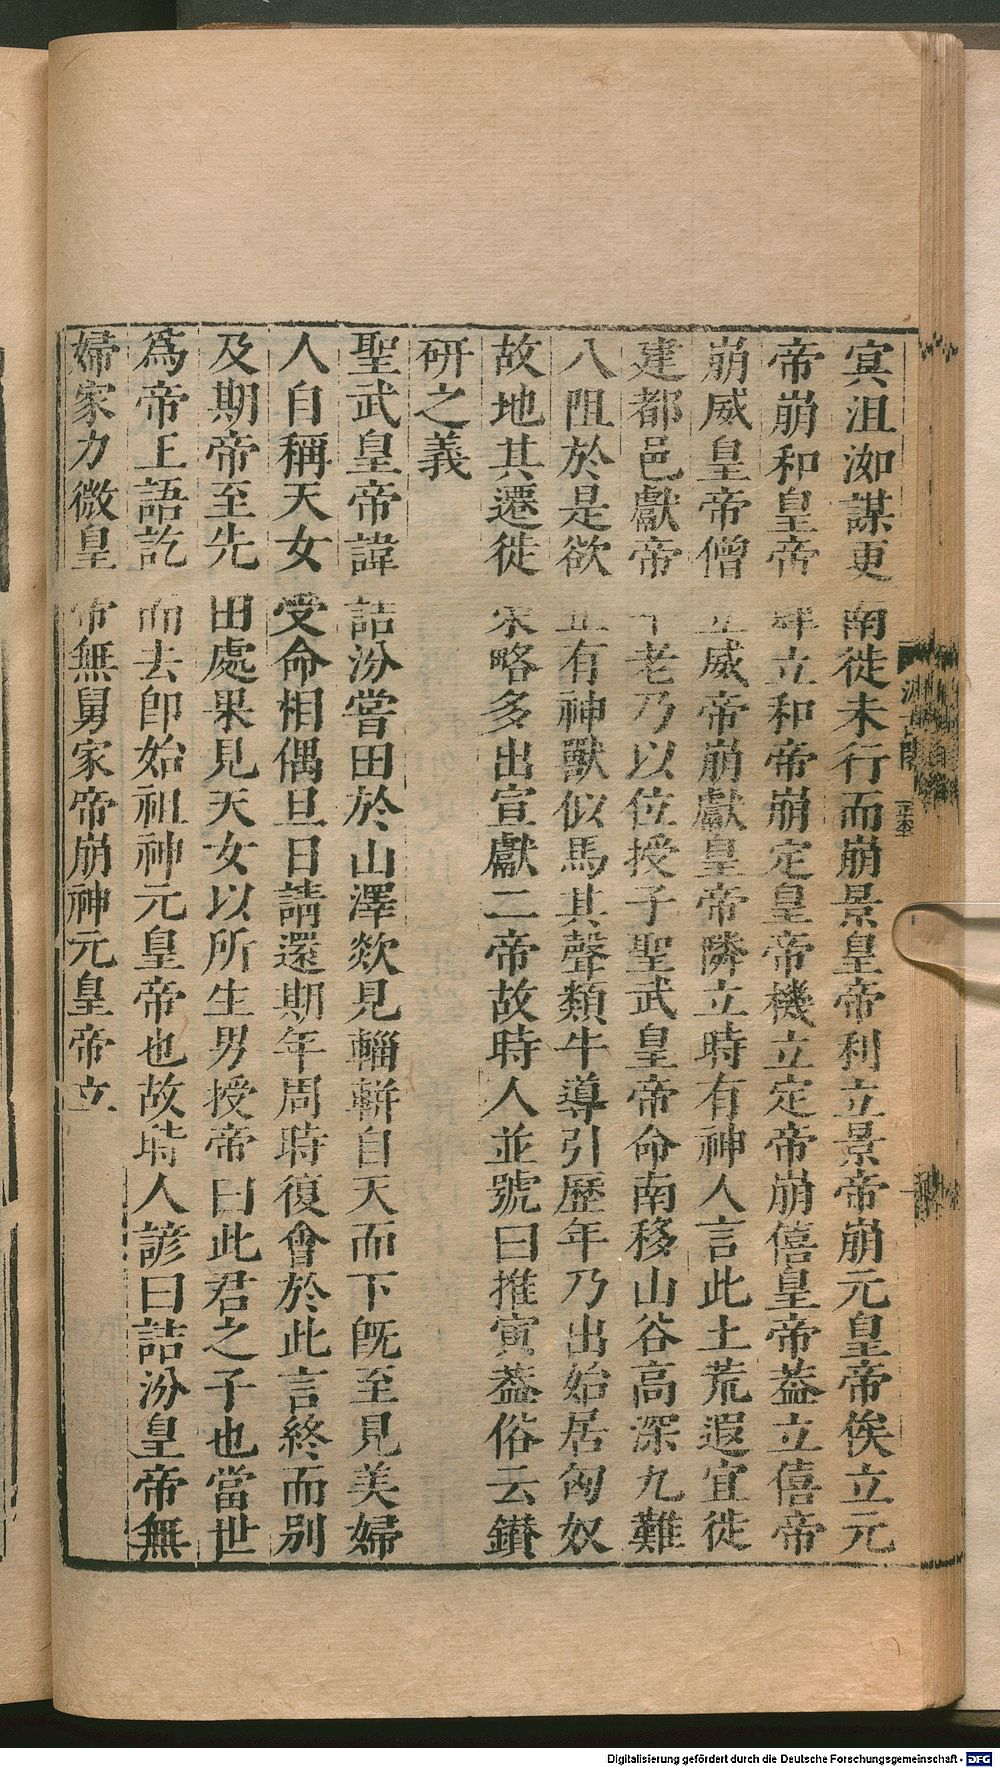 冥沮洳謀更南徙未行而崩景皇帝利立景帝崩元皇帝俟立元
帝崩和皇帝肆立和帝崩定皇帝機立定帝崩僖皇帝葢立僖帝
崩威皇帝僧立威帝崩獻皇帝隣立時有神人言此土荒遐宜徙
建都邑獻帝年老乃以位授子聖武皇帝命南移山谷高深九難
八阻於是欲止有神獸似馬其聲類牛導引歷年乃出始居匈奴
故地其遷徙策略多出宣獻二帝故時人並號曰推寅葢俗云鑚
研之義
聖武皇帝諱詰汾嘗田於山澤欻見輜軿自天而下旣至見美婦
人自稱天女受命相偶旦日請還期年周時復會於此言終而別
及期帝至先田處果見天女以所生男授帝曰此君之子也當世
爲帝王語訖而去卽始祖神元皇帝也故時人諺曰詰汾皇帝無
婦家力微皇帝無舅家帝崩神元皇帝立
Digitalisierung gefördert durch die Deutsche Forschungsgemeinschaft - DFG